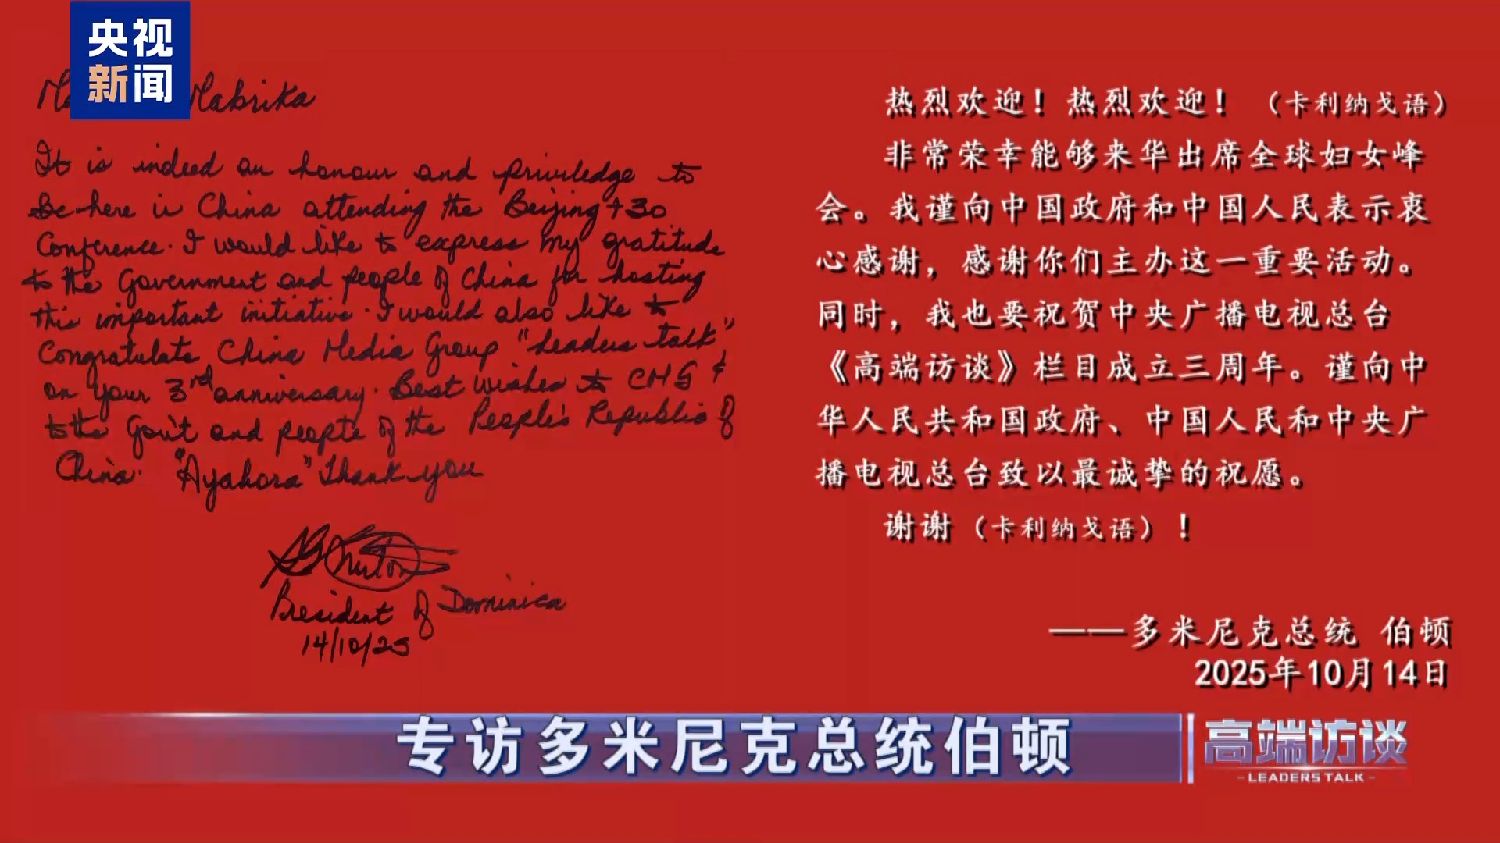 央视
新闻
Mabrika
It is indeed an honour and priviledge to
be here in China attending the Beijing +30
Conference. I would like to express my gratitude
to the Government and people of China for hosting
this important initiative. I would also like to
Congratulate China Media Group "Leaders talk"
on your 3rd anniversary. Best wishes to CMG &
to the Gov't and people of the People's Republic of
China. "Ayahora" Thank you
President of Dominica
14/10/25
热烈欢迎！热烈欢迎！（卡利纳戈语）
非常荣幸能够来华出席全球妇女峰
会。我谨向中国政府和中国人民表示衷
心感谢，感谢你们主办这一重要活动。
同时，我也要祝贺中央广播电视总台
《高端访谈》栏目成立三周年。谨向中
华人民共和国政府、中国人民和中央广
播电视总台致以最诚挚的祝愿。
谢谢（卡利纳戈语）！
——多米尼克总统 伯顿
2025年10月14日
专访多米尼克总统伯顿
高端访谈
-LEADERS TALK-